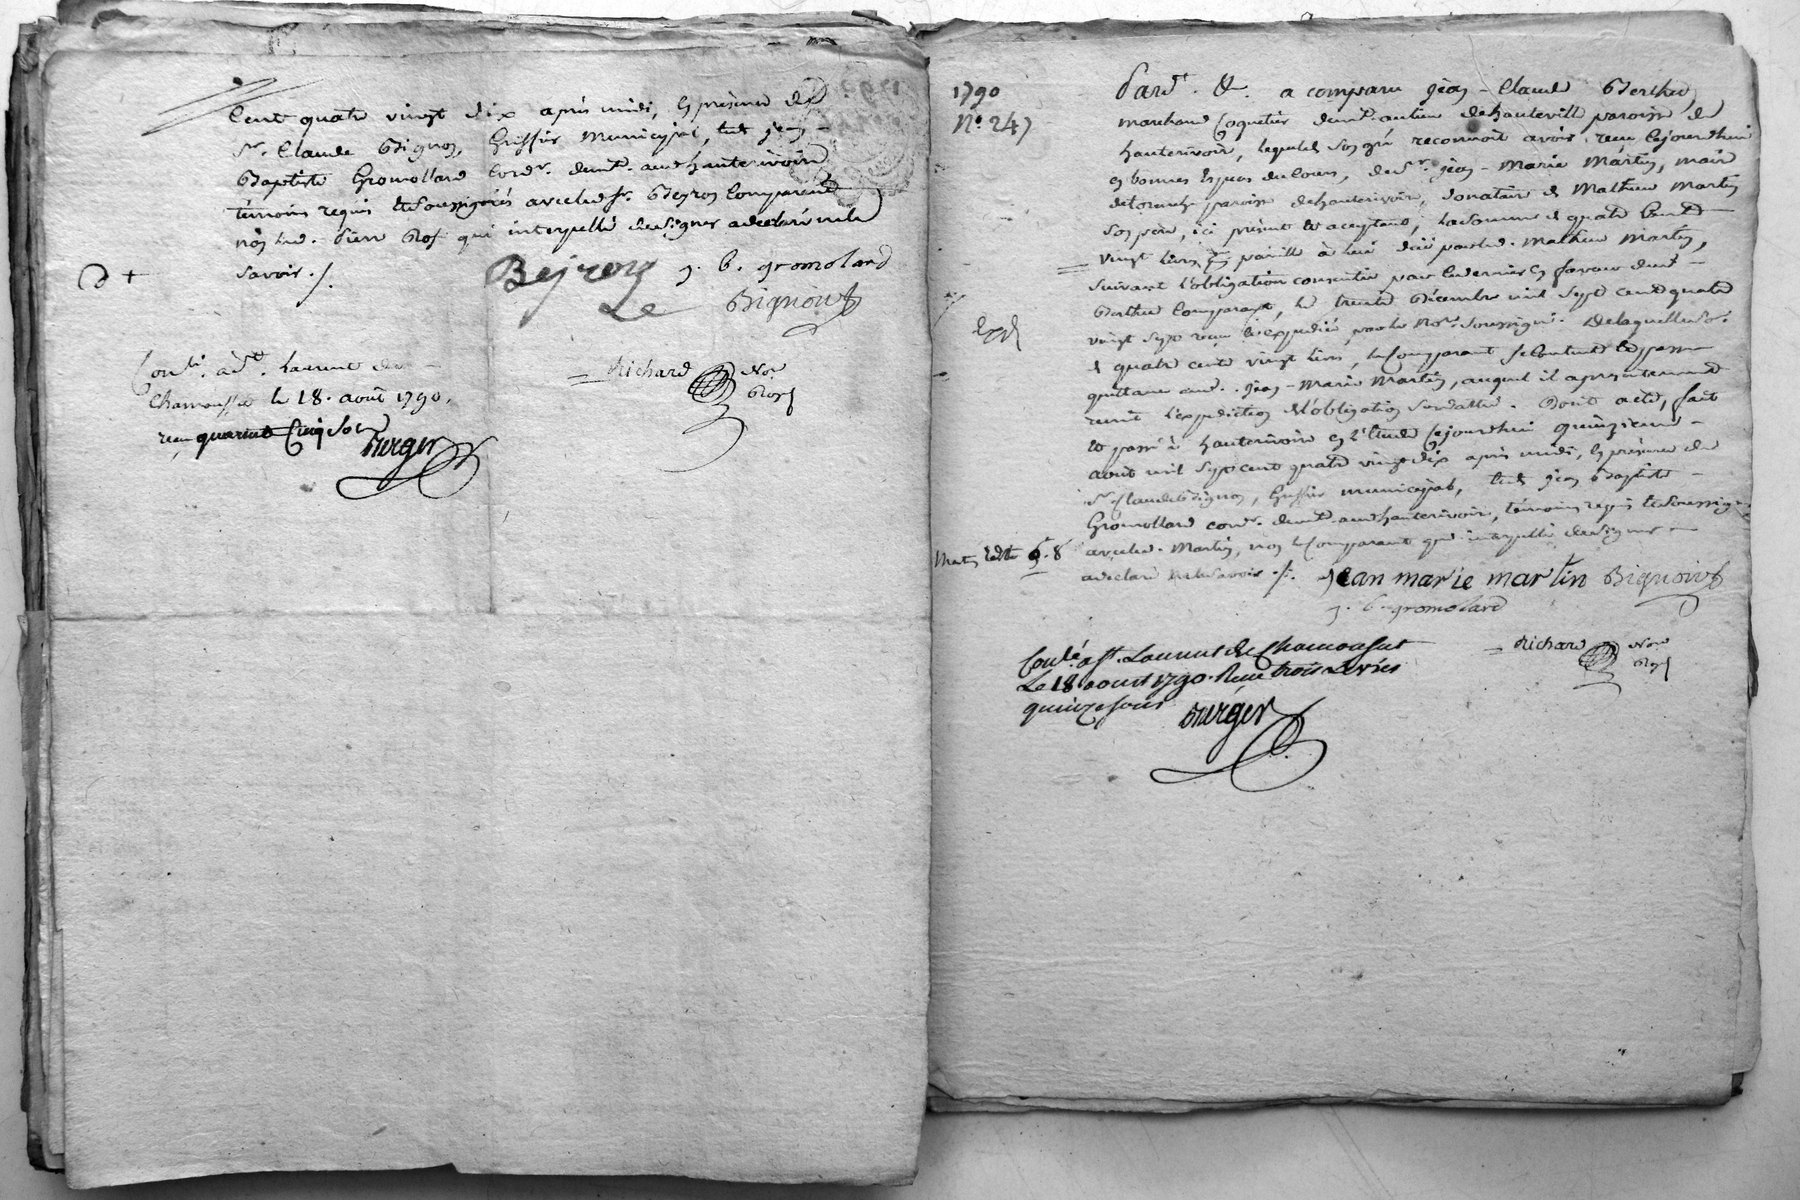 Cent quatre vingt dix après midi, En présence de
Sr. Claude Bignon, Greffier Municipal, Et de jean
Baptiste Gromollard Cordr. demt. aud. hauterivoire
témoins requis Et Soussignés avec led. Sr. Beyron Comparant
non led. pierre qui interpellé de signer a déclaré ne le
savoir ./.
Bejron
Le
j. b. gromolard
Bignon
Contlé. à St. Laurent de
Chamousset le 18. août 1790.
reçu quarante Cinq Sols
Burger
Richard Nore
Royl
1790
N° 247
Pardt. &. a comparu jean-Claude Berthet,
marchand Coquetier demt. au lieu de hauteville paroisse de
hauterivoire, lequel de son gré reconnoit avoir reçu cejourdhui
en bonnes Espèces du Cours, de Sr. jean-Marie Martin, maire
paroisse de hauterivoire, donataire de Mathieu Martin
Son père, ici présent Et acceptant, la Somme de quatre Cent
vingt livres pareille à lui due par led. Mathieu Martin,
Suivant l'obligation consentie par Ce dernier En faveur dud.
Berthet Comparant, le trente Décembre mil Sept Cent quatre
vingt Sept reçue Et expédiée par le Nore. Soussigné. De laquelle So.e
de quatre Cent vingt livres, le Comparant Se Contente Et passe
quittance aud. jean-Marie Martin, auquel il a présentement
remis l'expédition de l'obligation Susdattée. Dont acte, fait
Et passé à hauterivoire En l'Etude Cejourdhui quinzieme
aout mil Sept cent quatre vingt dix après midi, En présence de
Sr. Claude Bignon, Greffier municipal, Et de jean Baptiste
Gromollard cordr. demt. aud. hauterivoire, témoins requis Et Soussignés
avec led. Martin, non le Comparant qui interpellé de signer
a déclaré ne le Savoir ./.
jean marie martin Bignon
j. b. gromolard
Contlé. a St. Laurent de Chamousset
Le 18 aoust 1790. Reçu trois Livres
quinze sous
Burger
Richard Nore
Royl